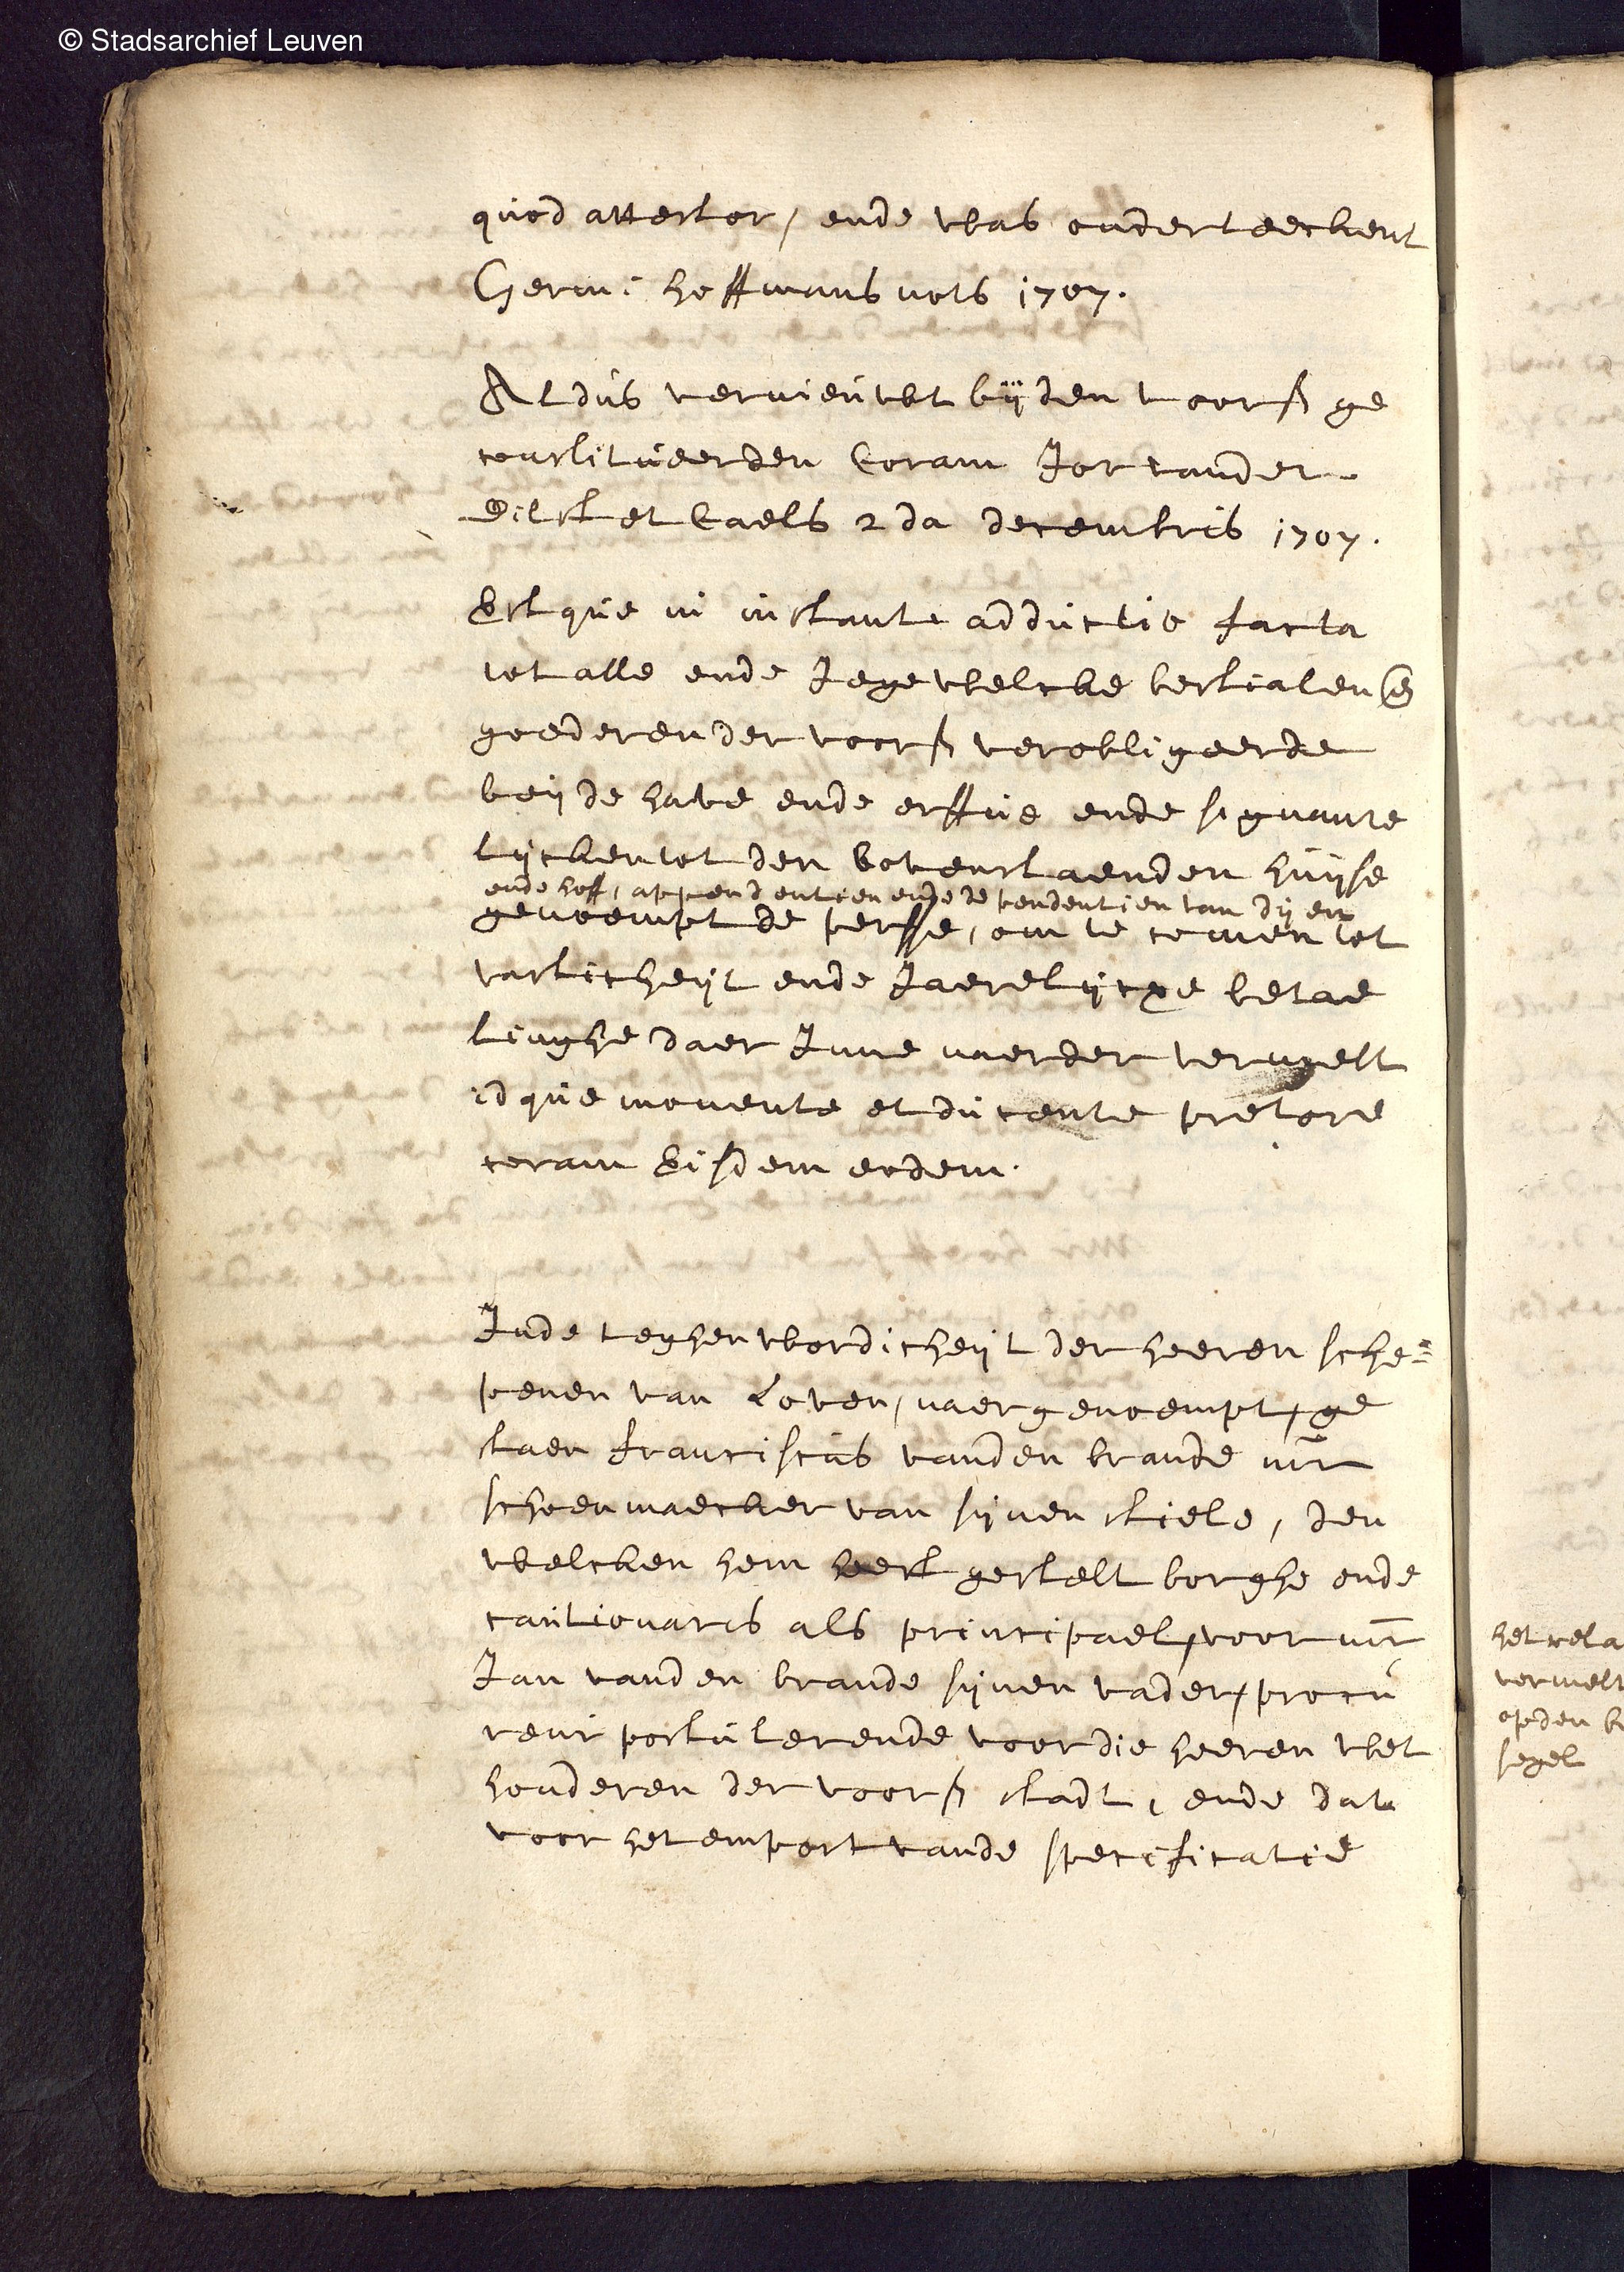 © Stadsarchief Leuven
quod attestor, ende was onderteeckent
Germ: hoffmans nots 1707.
Aldus vernieuwt bijden voors ge
constitueerden Coram Jor vander
Dilst et Caels 2da decembris 1707.
Estque in instanti adductio facta
tot alle ende Jegewelcke bestialen en
goederen der voors verobligeerde
beijde have ende erffve ende signante
lijcken tot den bovenstaenden huijse
ende hoff, appendentien ende dependentien van dijen
genoempt de persse, om te comen tot
vasticheijt ende Jaerelijcxe betae
linghe daer Inne naerder vermelt
idque monente et ducente pretore
coram Eisdem eodem.
Inde teghenwordicheijt der heeren sche=
penen van Loven, naergenoempt, ge
staen franciscus vanden brande mr
schoenmaecker van sijnen stiele, den
welcken hem heeft gestelt borghe ende
cautionaris als principael, voor mr
Jan vanden brande sijnen vader, procu
reur postulerende voor die heeren wet
houderen der voors stadt, ende dat
voor het emport vande specificatie
het rela
vermelt
opden
segel